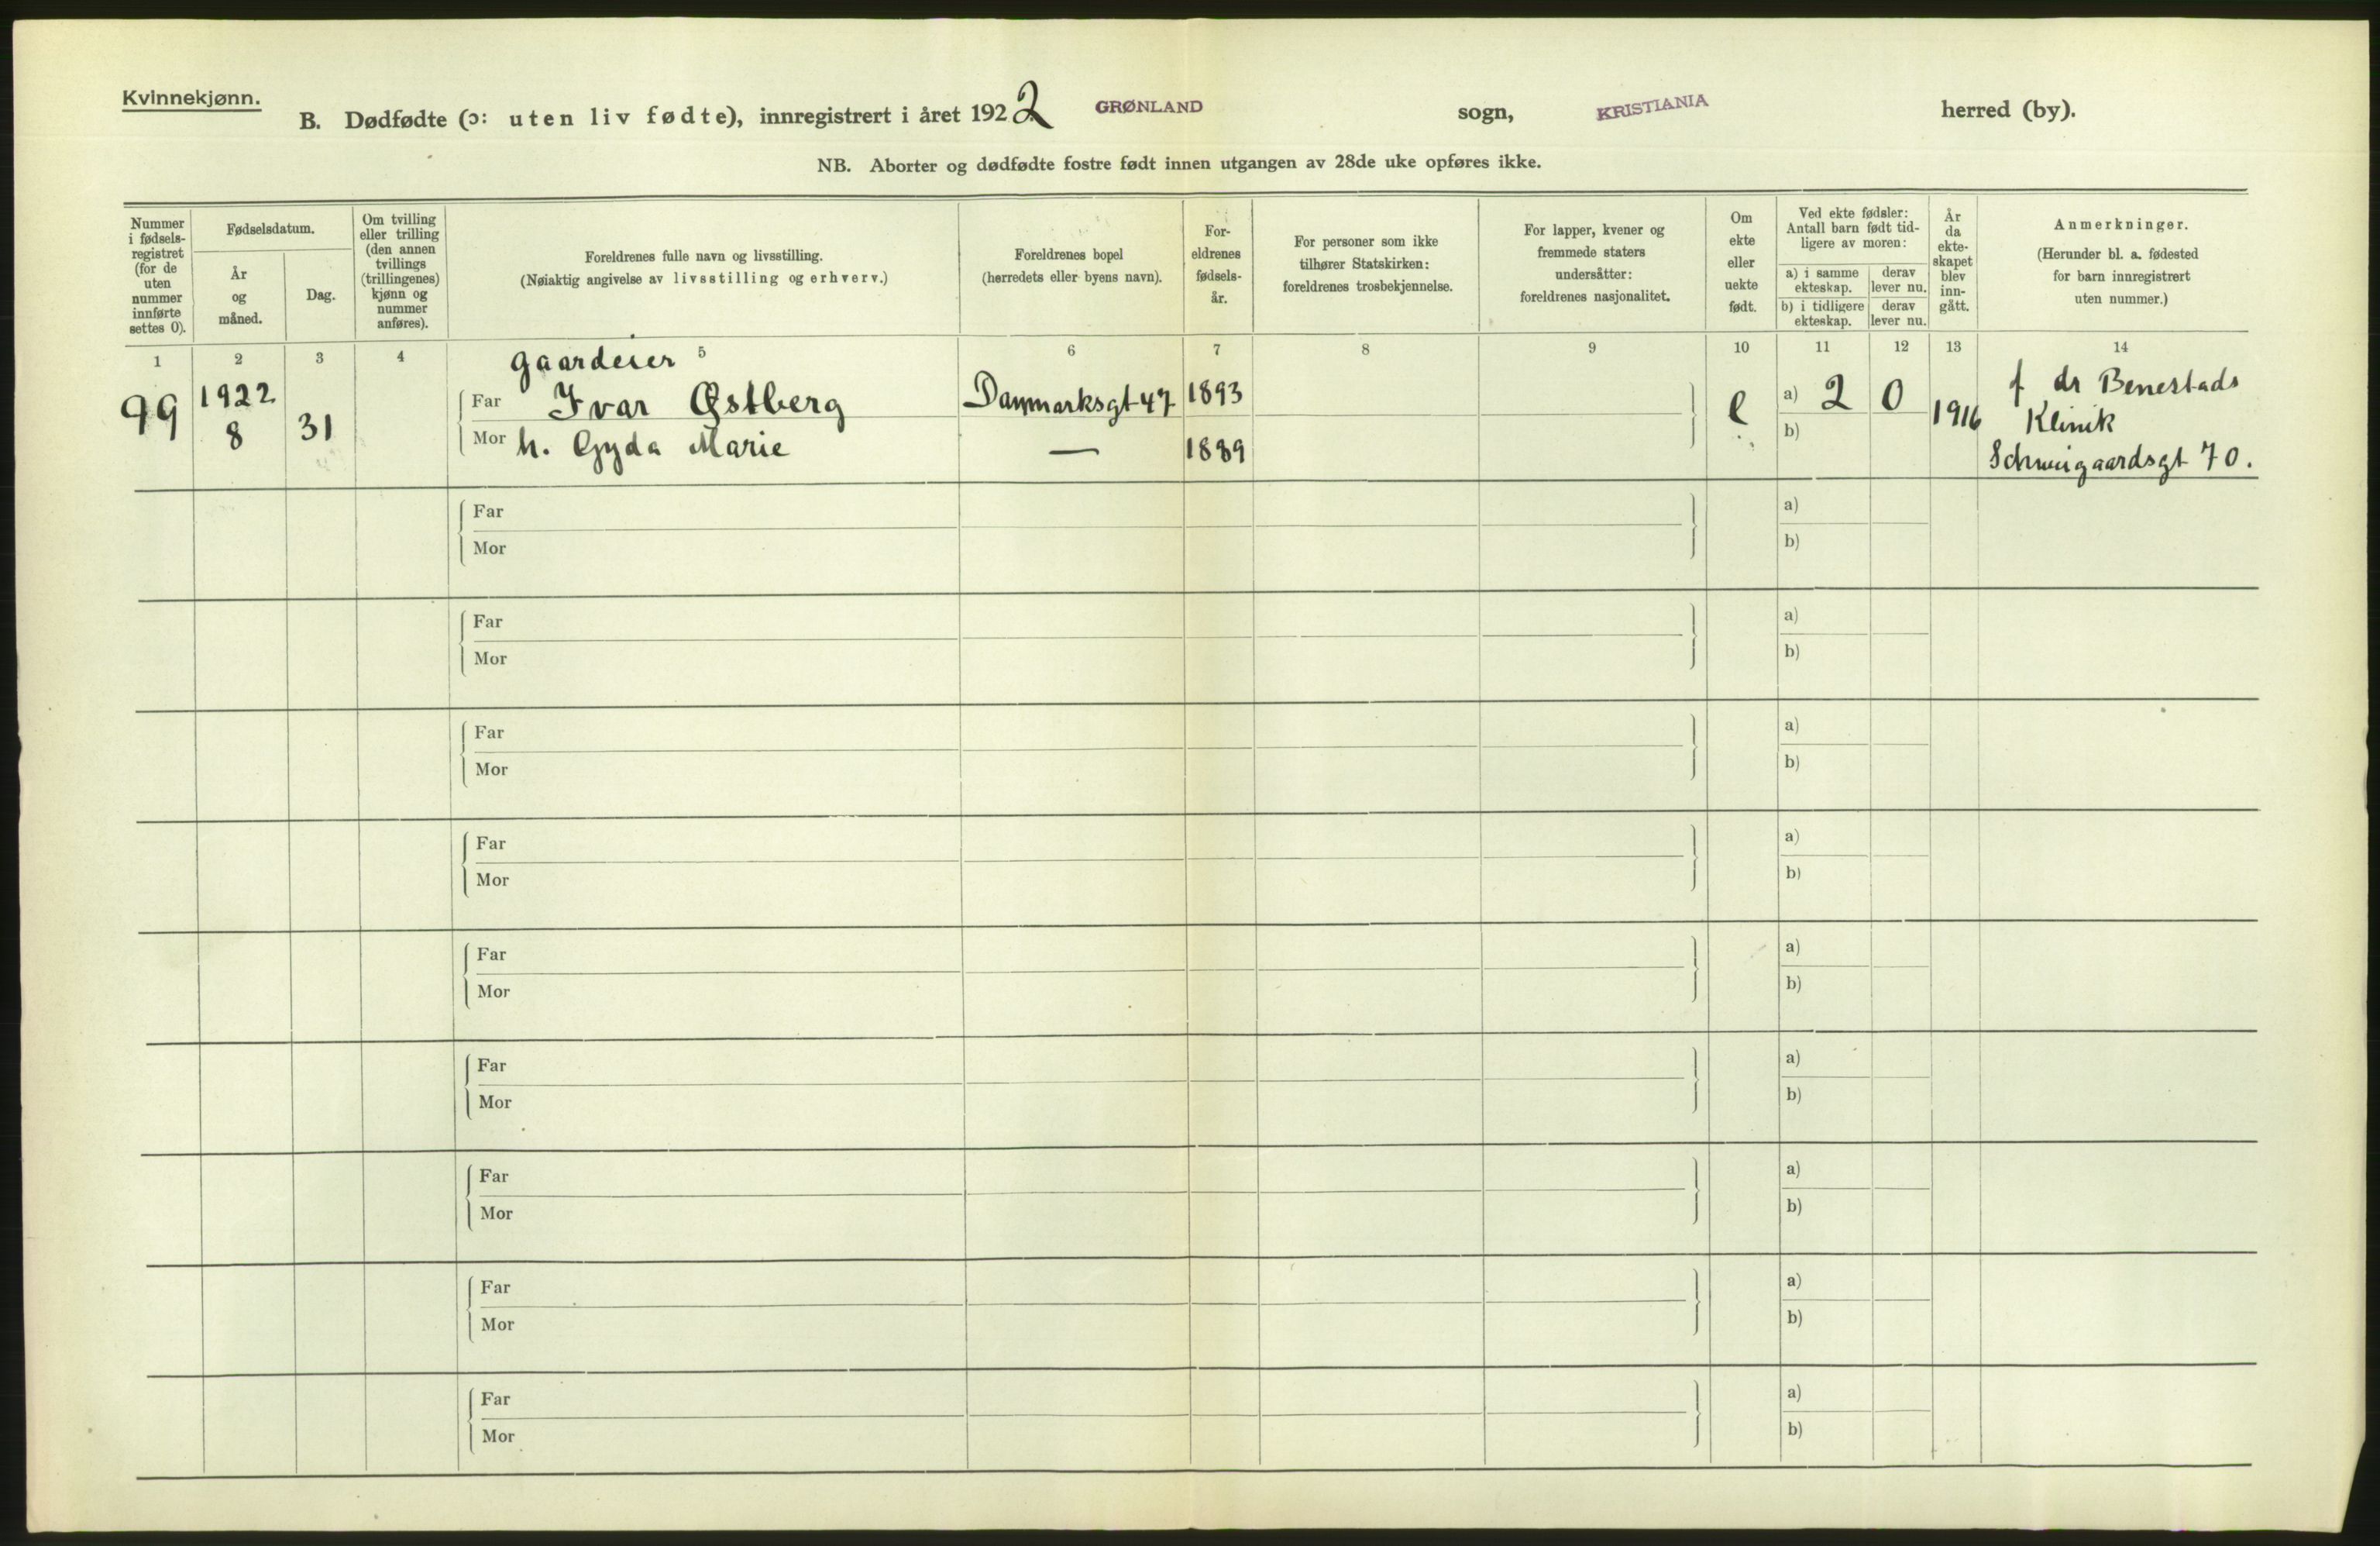 Kvinnekjønn.
B. Dødfødte (ɔ: uten liv fødte), innregistrert i året 1922 GRØNLAND sogn, KRISTIANIA herred (by).
NB. Aborter og dødfødte fostre født innen utgangen av 28de uke opføres ikke.
Nummer
i fødsels-
registret
(for de
uten
nummer
innførte
settes 0).
Fødselsdatum.
År
og
måned.
Dag.
Om tvilling
eller trilling
(den annen
tvillings
(trillingenes)
kjønn og
nummer
anføres).
Foreldrenes fulle navn og livsstilling.
(Nøiaktig angivelse av livsstilling og erhverv.)
Foreldrenes bopel
(herredets eller byens navn).
For-
eldrenes
fødsels-
år.
For personer som ikke
tilhører Statskirken:
foreldrenes trosbekjennelse.
For lapper, kvener og
fremmede staters
undersåtter:
foreldrenes nasjonalitet.
Om
ekte
eller
uekte
født.
Ved ekte fødsler:
Antall barn født tid-
ligere av moren:
a) i samme
ekteskap.
derav
lever nu.
b) i tidligere
ekteskap.
derav
lever nu.
År
da
ekte-
skapet
blev
inn-
gått.
Anmerkninger.
(Herunder bl. a. fødested
for barn innregistrert
uten nummer.)
1 2 3 4 5 6 7 8 9 10 11 12 13 14
99
1922
8
31
Gaardeier
Far Ivar Østberg
Mor h. Gyda Marie
Danmarksgt 47
—
1893
1889
e
a) 2 0
b)
1916
f dr Benestads
Klinik
Schweigaardsgt 70.
Far a)
Mor b)
Far a)
Mor b)
Far a)
Mor b)
Far a)
Mor b)
Far a)
Mor b)
Far a)
Mor b)
Far a)
Mor b)
Far a)
Mor b)
Far a)
Mor b)